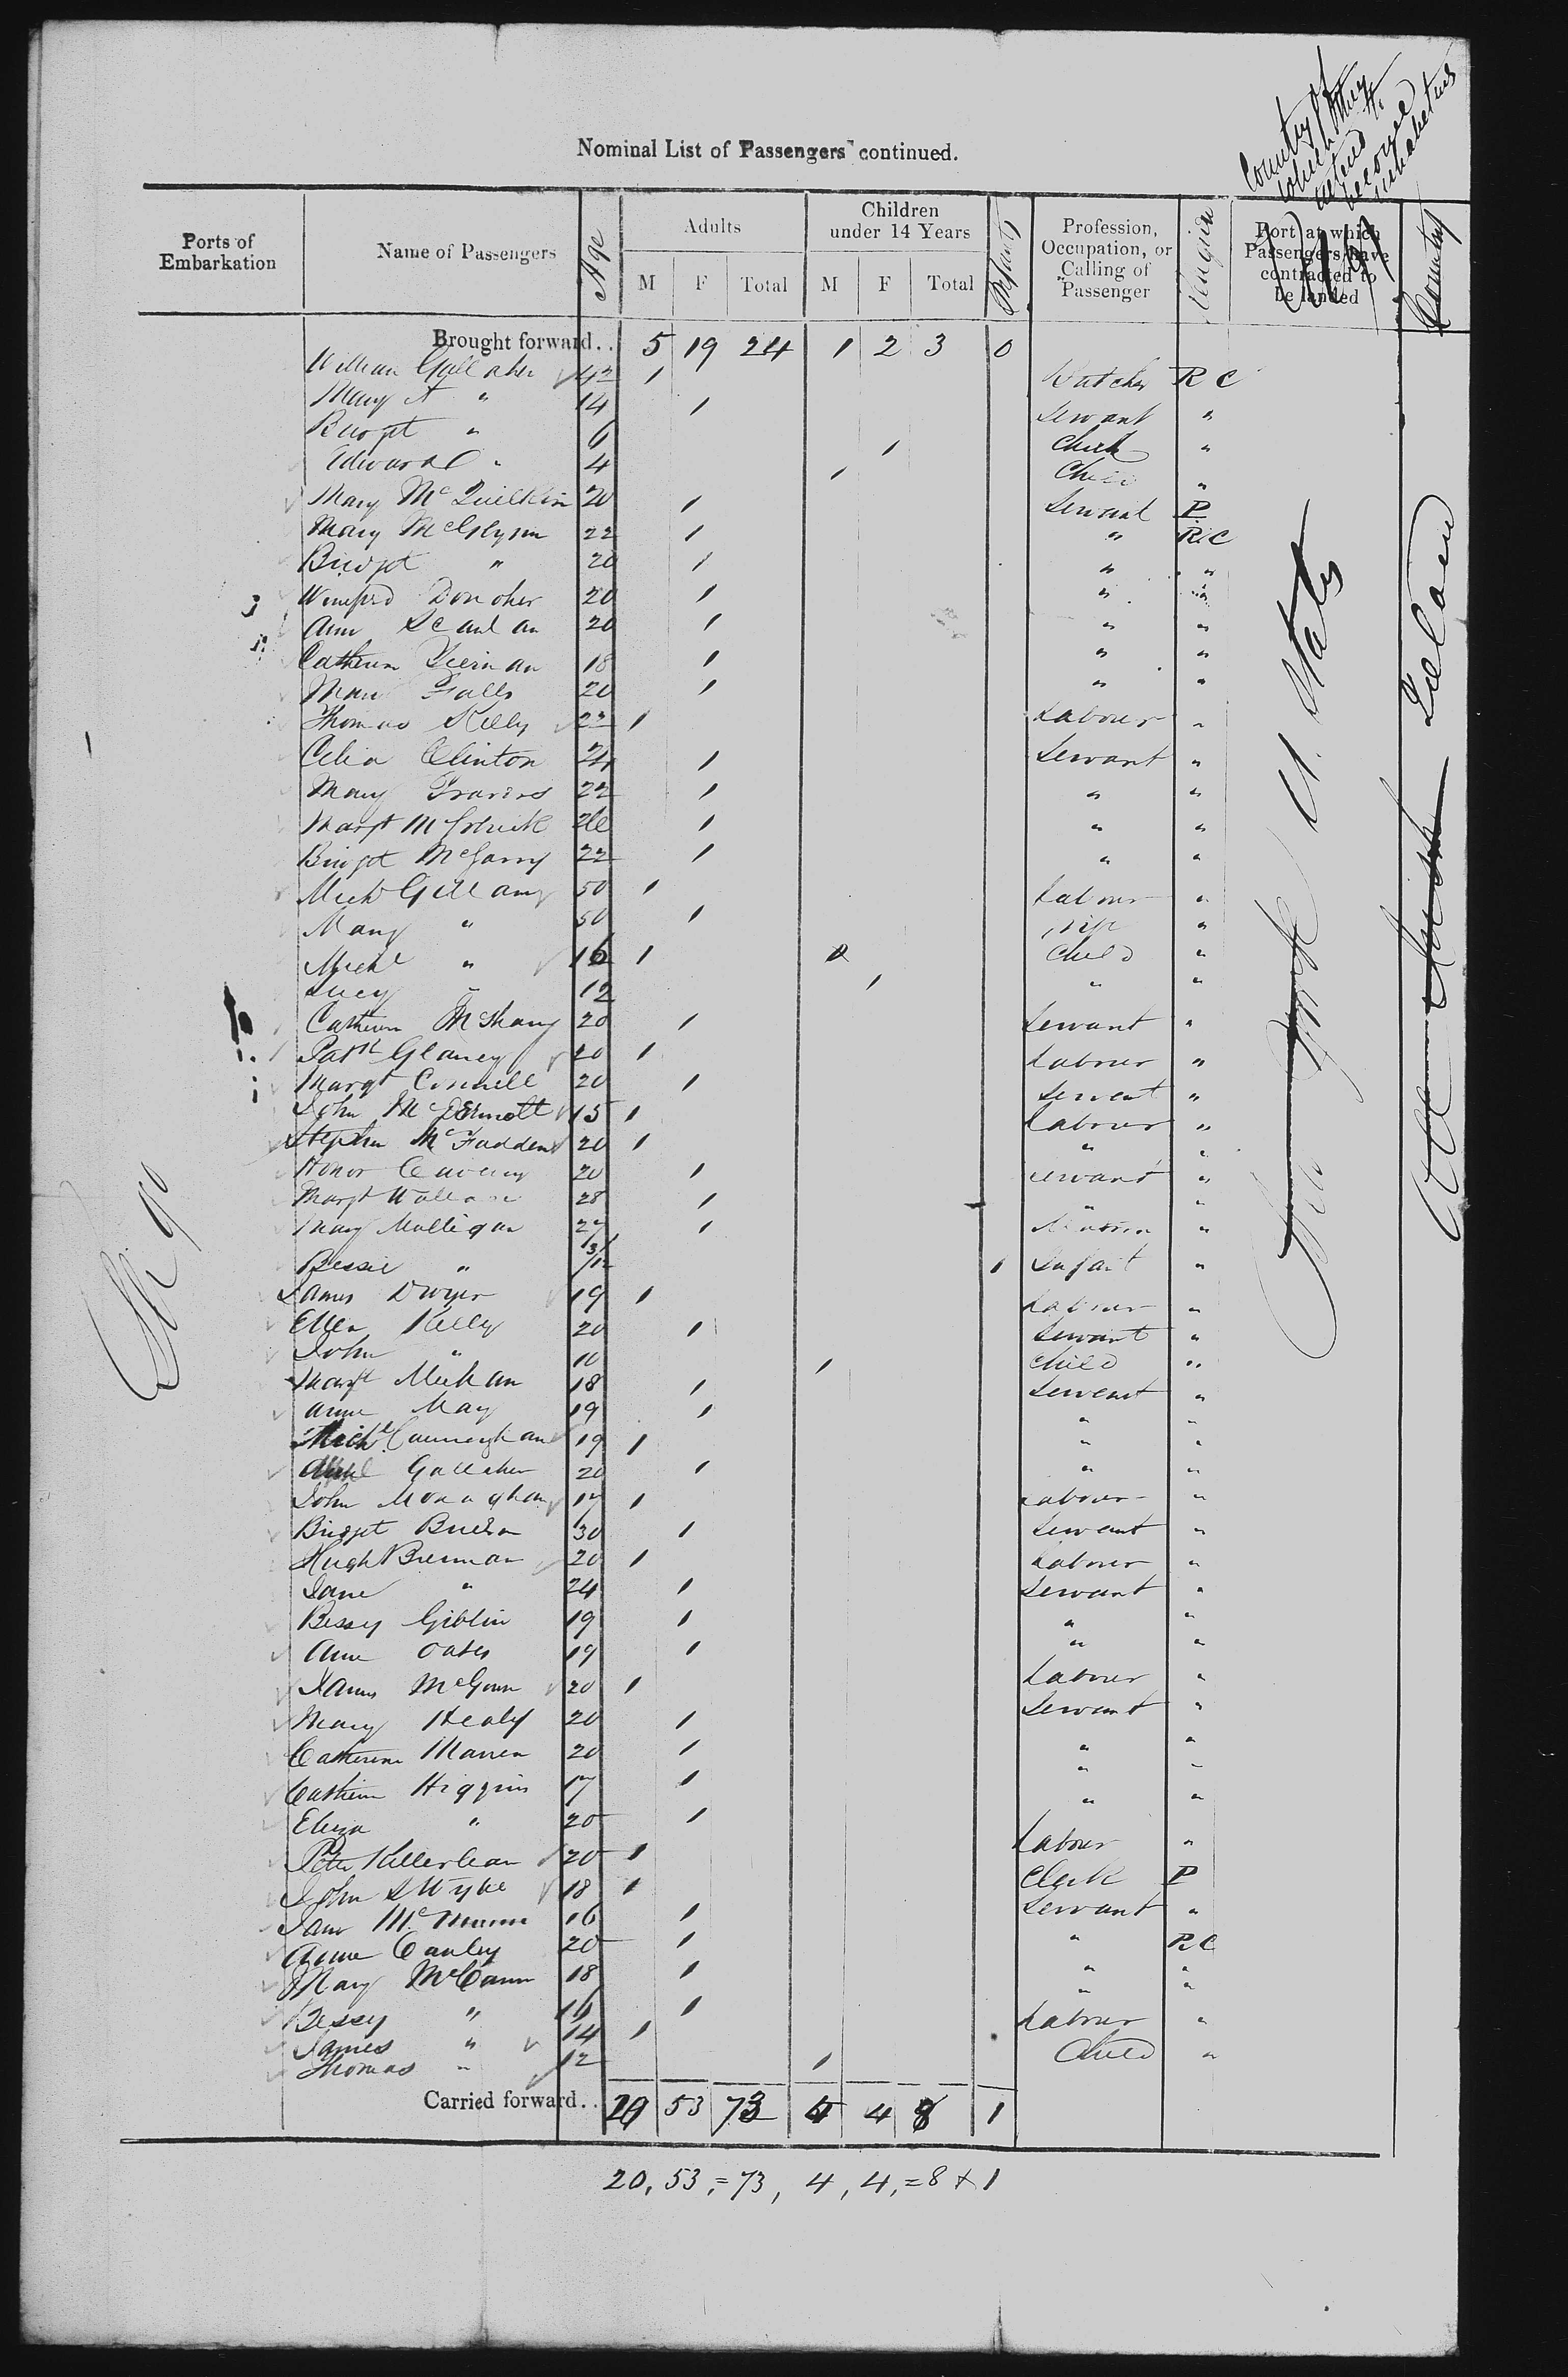 Country of which they intend to become inhabitants
Nominal List of Passengers continued.
Ports of Embarkation | Name of Passengers | Age | Adults M F Total | Children under 14 Years M F Total | Infants | Profession, Occupation, or Calling of Passenger | Religion | Port at which Passengers have contracted to be landed | Country
Brought forward.. 5 19 24 1 2 3 0
William Gallaher 42 1 Butcher R C
Mary A " 14 1 Servant "
Bridgt " 6 1 Child "
Edward " 4 1 Child "
Mary McQuilkin 20 1 Servant P
Mary McGlynn 22 1 " R.C
Bridgt " 20 1 " "
Winifred Donoher 20 1 " "
Ann Scanlan 20 1 " "
Catherin Tiernan 18 1 " "
Mary Falls 20 1 " "
Thomas Kelly 22 1 Labourer "
Celia Clinton 24 1 Servant "
Mary Travers 22 1 " "
Margt McGetrick 1 " "
Bridgt McGarry 22 1 " "
Michl Gillany 50 1 Labourer "
Mary " 50 1 Wife "
Michl " 16 1 Child "
Lucy " 12 1 " "
Catherin McSharry 20 1 Servant "
Patk Glancy 20 1 Labourer "
Margt Connell 20 1 Servant "
John McDermott 15 1 Labourer "
Stephen McFadden 20 1 " "
Honor 20 1 Servant "
Margt 28 1 " "
Mary Mulligan 27 1 Matron "
Bessie " 3/12 1 Infant "
James Dwyer 19 1 Labourer "
Ellen Kelly 20 1 Servant "
John " 10 1 Child "
Margt Meehan 18 1 Servant "
Anne May 19 1 " "
Michl Cunningham 19 1 " "
Gallaher 20 1 " "
John Monaghan 17 1 Labourer "
Bridget 30 1 Servant "
Hugh Brennan 20 1 Labourer "
Jane " 24 1 Servant "
Bessy Giblin 19 1 " "
Anne Oates 19 1 " "
James McGowan 20 1 Labourer "
Mary Healy 20 1 Servant "
Catherine Marren 20 1 " "
Catherin Higgins 17 1 " "
Eliza " 20 1 " "
Peter Killerlean 20 1 Labourer "
John 18 1 Clerk P
Jane McMunn 16 1 Servant "
Anne Conley 20 1 " R C
Mary McCann 18 1 " "
Bessy " 16 1 " "
James " 14 1 Labourer "
Thomas " 12 1 Child "
Carried forward.. 20 53 73 4 4 8 1
20, 53, = 73, 4, 4, = 8 + 1
Sligo
New York U. States
All Irish Ireland